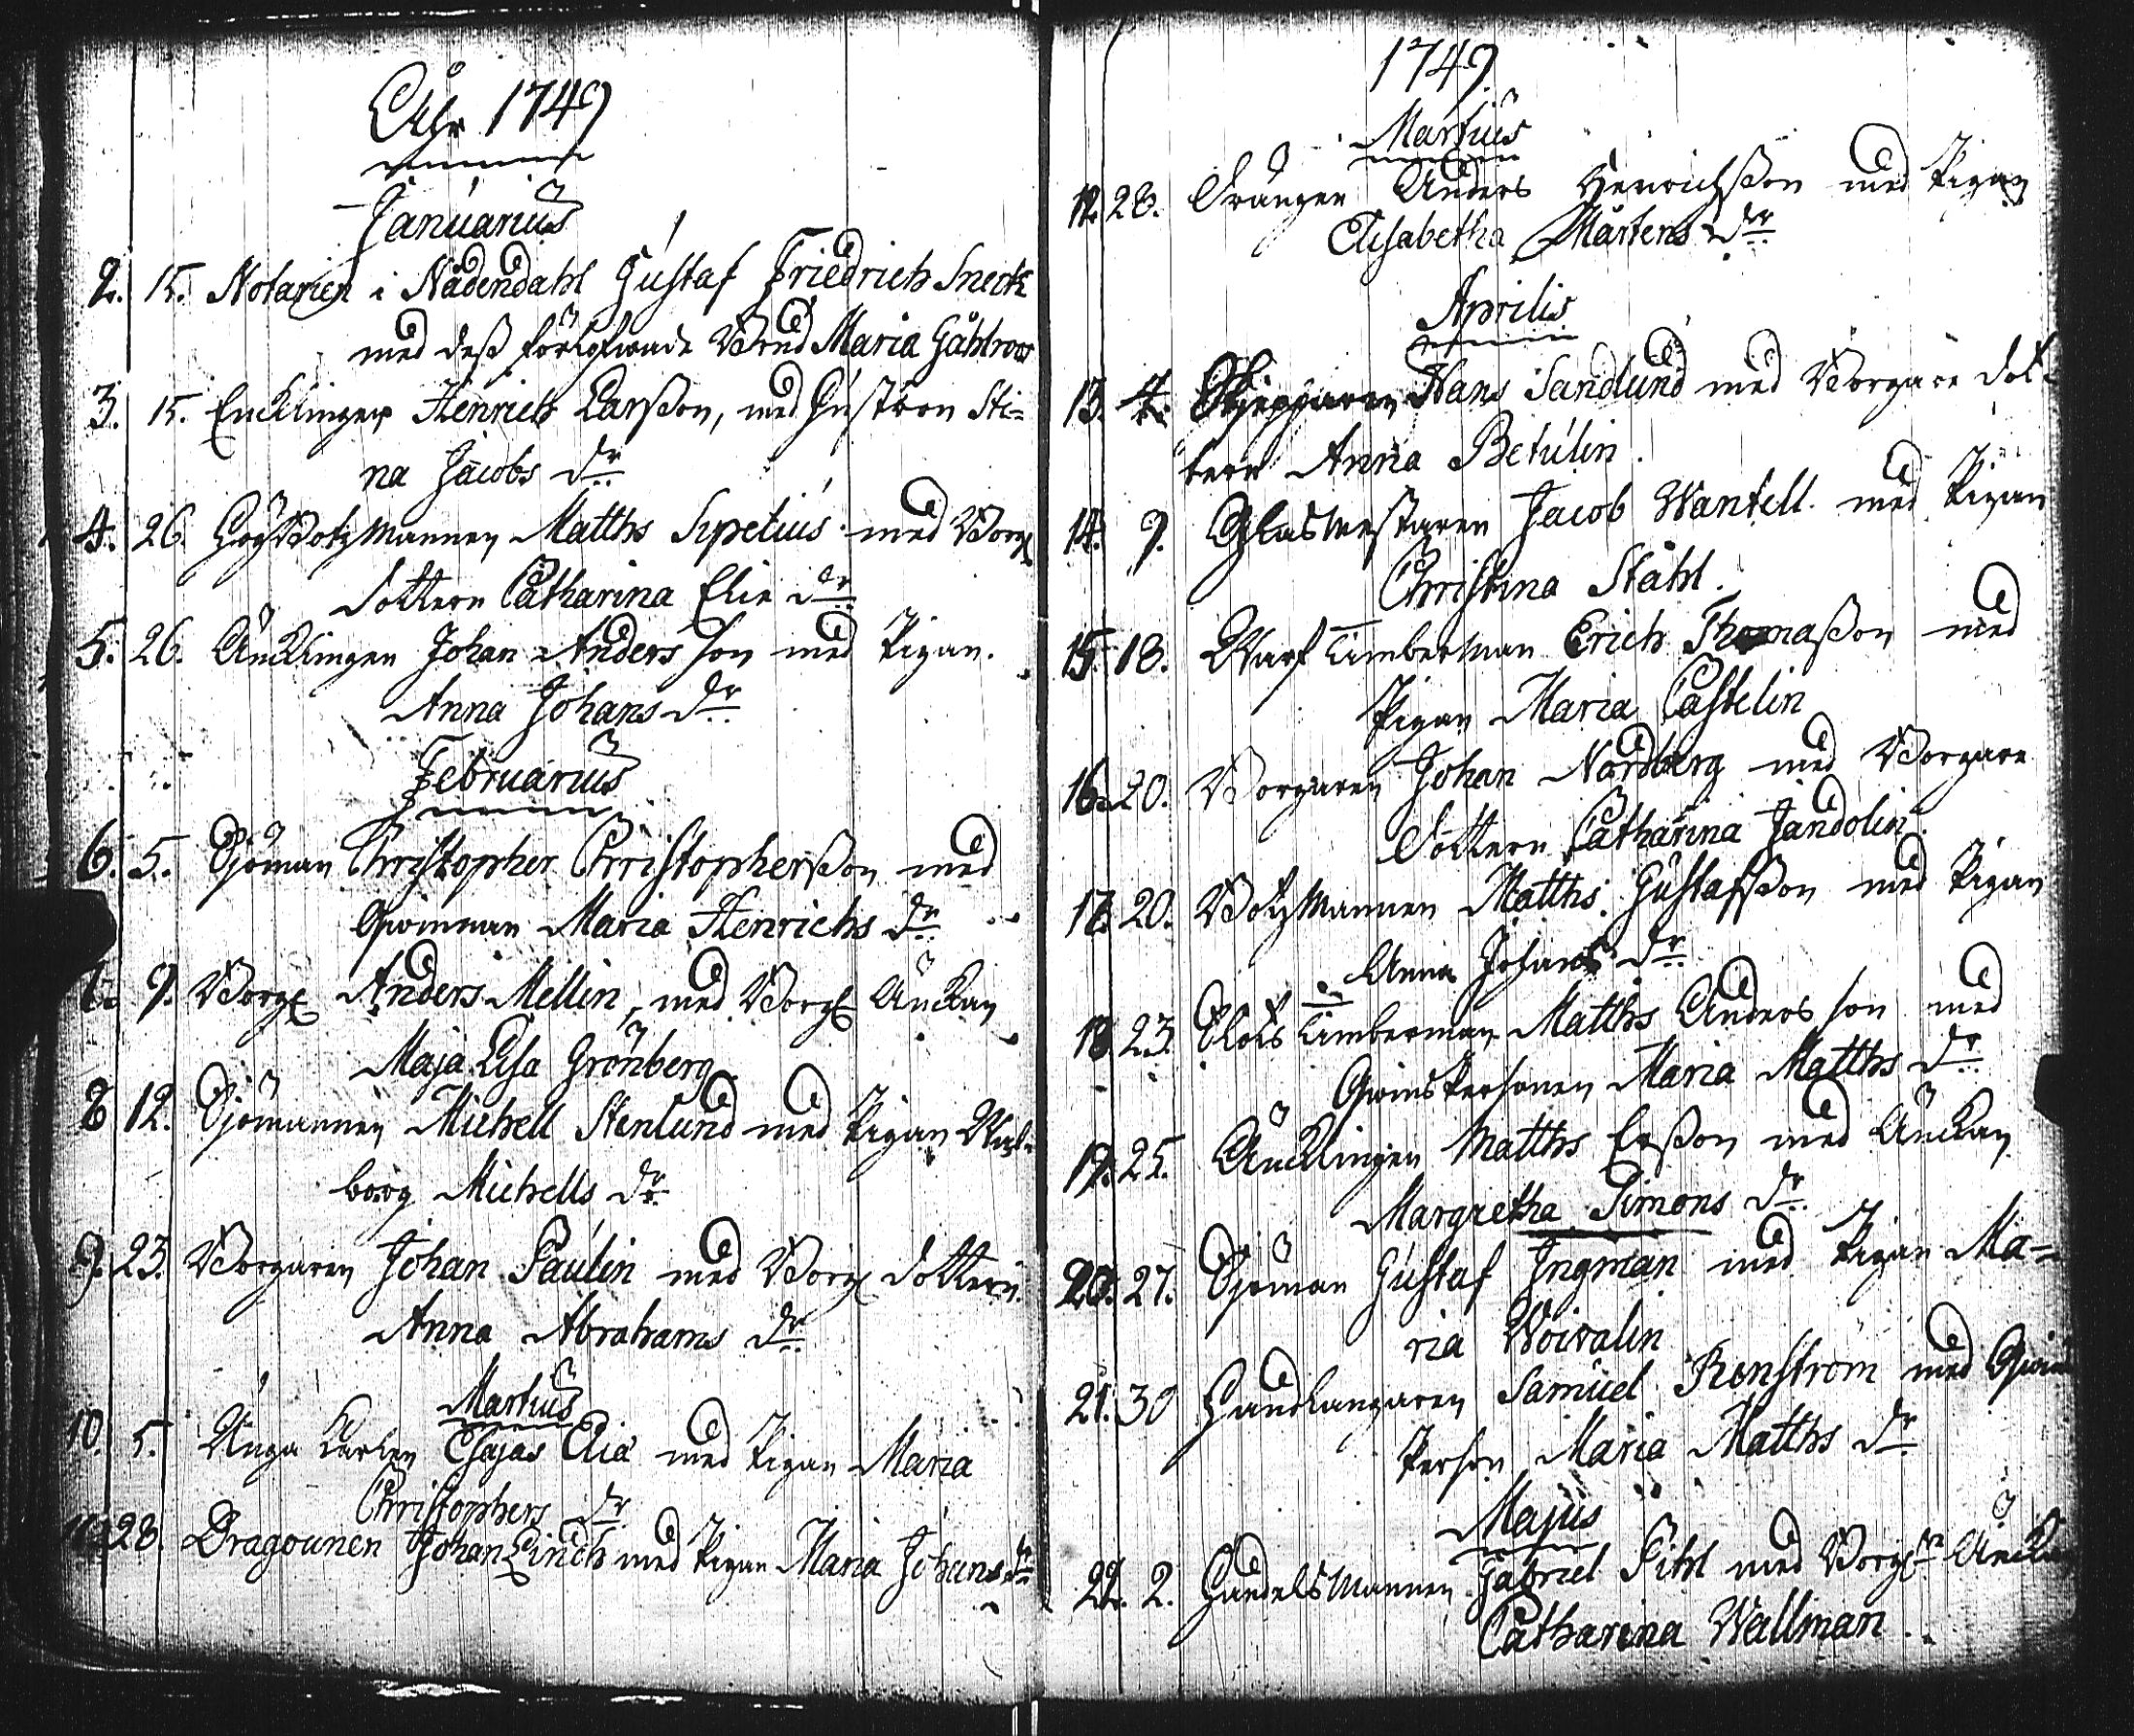 Åhr 1749
Januarius
2. 15. Notarien i Nådendahl Gustaf Friedrich Sneck
med deß Brud Maria Gåhlroos
3. 15. Encklingen Henrich Larßon, med Hustron Sti=
na Jacobs dr
4. 26. Högbåtzmannen Matths Sipelius med Borg:
dottern Catharina Elie dr
5. 26. Äncklingen Johan Anders son med Pigan.
Anna Johans dr
Februarius
6. 5. Sjöman Christopher Christopherßon med
Qwinnan Maria Henrichs dr
7. 9. Borg: Anders Mellin, med Borg: Änckan
Maja Lisa Grönberg
8 12. Sjömannen Michell Stenlund med Pigan Wal=
borg Michells dr
9. 23. Borgaren Johan Paulin med Borg: dottern
Anna Abrahams dr
Martius
10. 5. Unga Karlen Esajas Elia med Pigan Maria
Christophers dr
11. 28. Dragounen Johan Linck med Pigan Maria Johans dr
1749
Martius
12. 28. Drängen Anders Henrichßon med Pigan
Elisabetha Mårtens dr
Aprilis
13. 4. Skepparen Hans Sandlund med Borgare dot=
tern Anna Betulin.
14. 9. Glasmestaren Jacob Wantell med Pigan
Christina Ståhl.
15. 18. Warf Timberman Erich Thomaßon med
Pigan Maria Castelin
16. 20. Borgaren Johan Nordberg med Borgare
Dottern Catharina Jandolin.
17. 20. Båtzmannen Matths Gustafsson med Pigan
Anna Johans dr
18. 23. Slots Timberman Matths Anders son med
Qwinspersonen Maria Matths dr
19. 25. Äncklingen Matths Erßon med Änckan
Margretha Simons dr
20. 27. Sjöman Gustaf Ingman med Pigan Ma=
ria Woivalin
21. 30 Handlangaren Samuel Renström med Qwins
Person Maria Matths dr
Majus
22. 2. Handelsmannen Gabriel Pihl med Borg: Änckan
Catharina Wallman